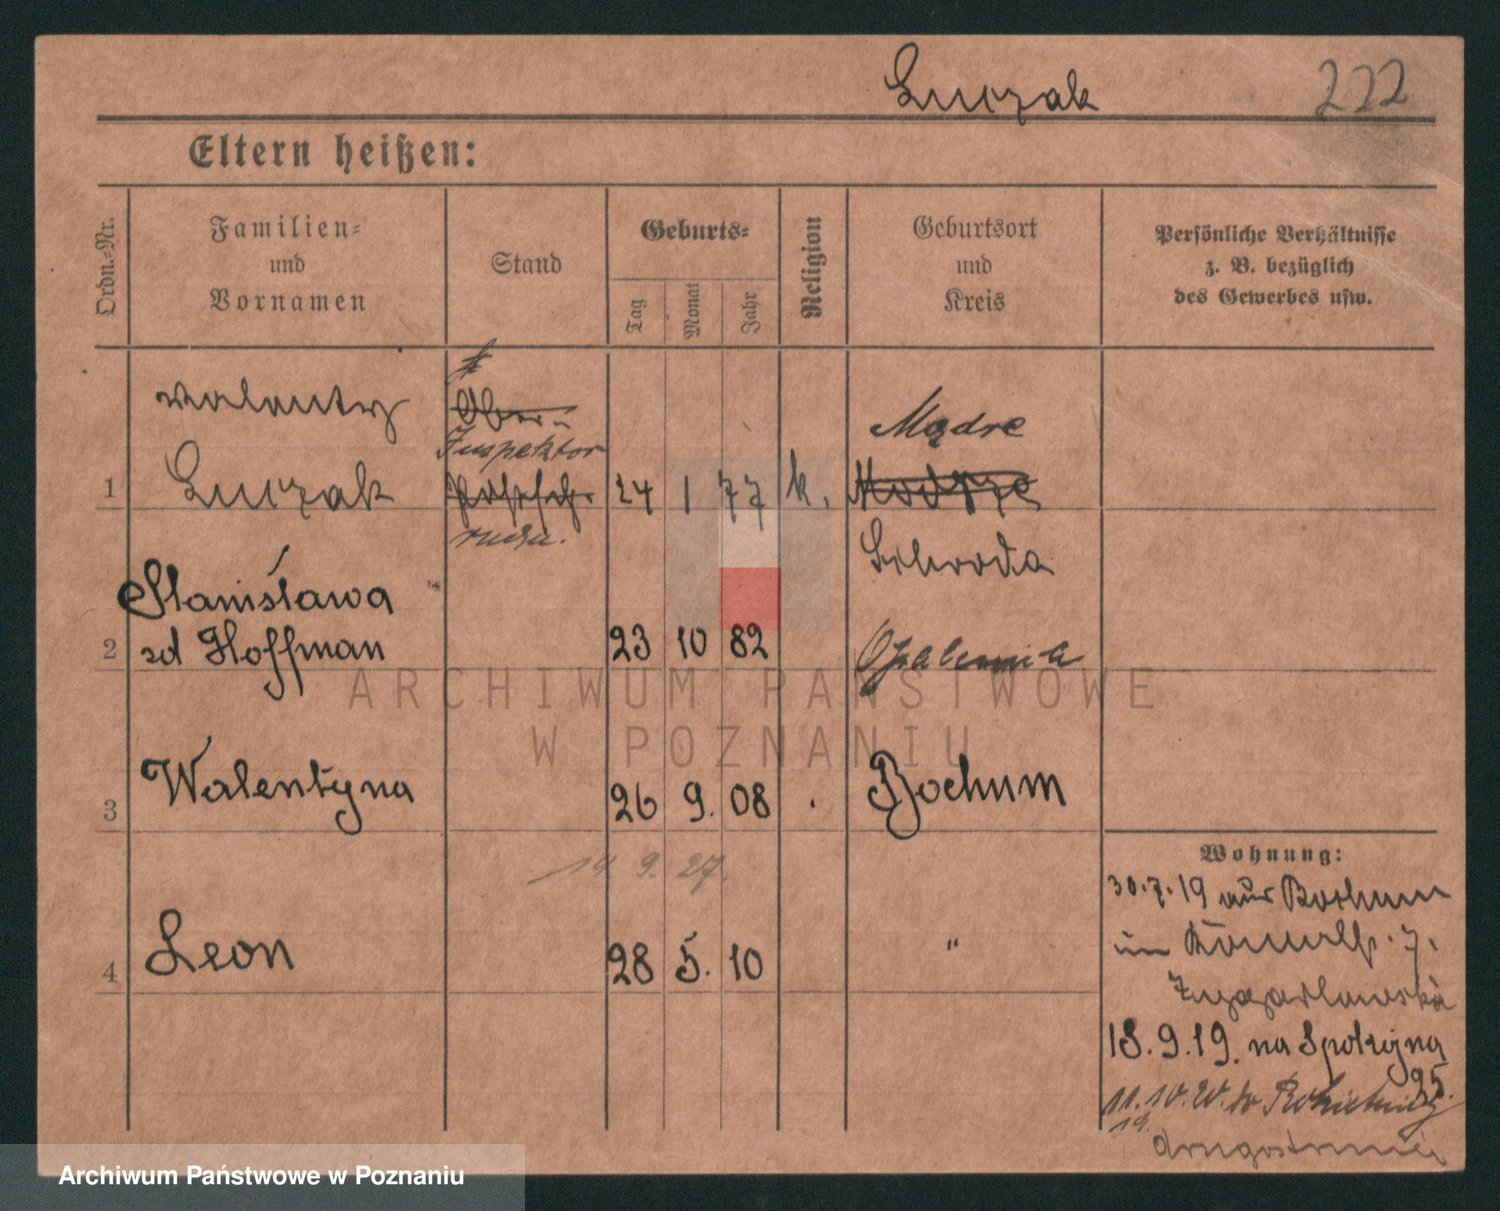 Luczak 222
Eltern heißen:
Ordn.-Nr.
Familien-
und
Vornamen
Stand
Geburts-
Tag
Monat
Jahr
Religion
Geburtsort
und
Kreis
Persönliche Verhältnisse
z. B. bezüglich
des Gewerbes usw.
Walenty
Ober-
Inspektor
Mądre
1 Luczak 24 1 77 k. Modrze
Schroda
Stanisława
2 zd Hoffman 23 10 82 Opalenica
ARCHIWUM PAŃSTWOWE
W POZNANIU
3 Walentyna 26 9. 08 . Bochum
19 9. 27.
4 Leon 28 5. 10 "
Wohnung:
30.7.19 aus Bochum
in
18.9.19. na Spokojną
25
11.10.20. do Rokietnicy
19.
Archiwum Państwowe w Poznaniu